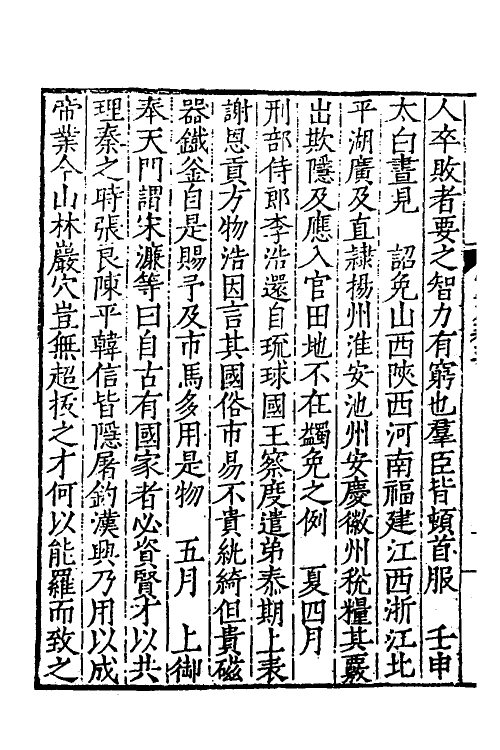 人卒敗者要之智力有窮也羣臣皆頓首服　壬申
太白晝見　詔免山西陜西河南福建江西浙江北
平湖廣及直隷揚州淮安池州安慶徽州稅糧其覈
出欺隱及應入官田地不在蠲免之例　夏四月
刑部侍郎李浩還自琉球國王察度遣弟泰期上表
謝恩貢方物浩因言其國俗市易不貴紈綺但貴磁
器鐵釜自是賜予及市馬多用是物　五月　上御
奉天門謂宋濂等曰自古有國家者必資賢才以共
理秦之時張良陳平韓信皆隱屠釣漢興乃用以成
帝業今山林巖穴豈無超拔之才何以能羅而致之